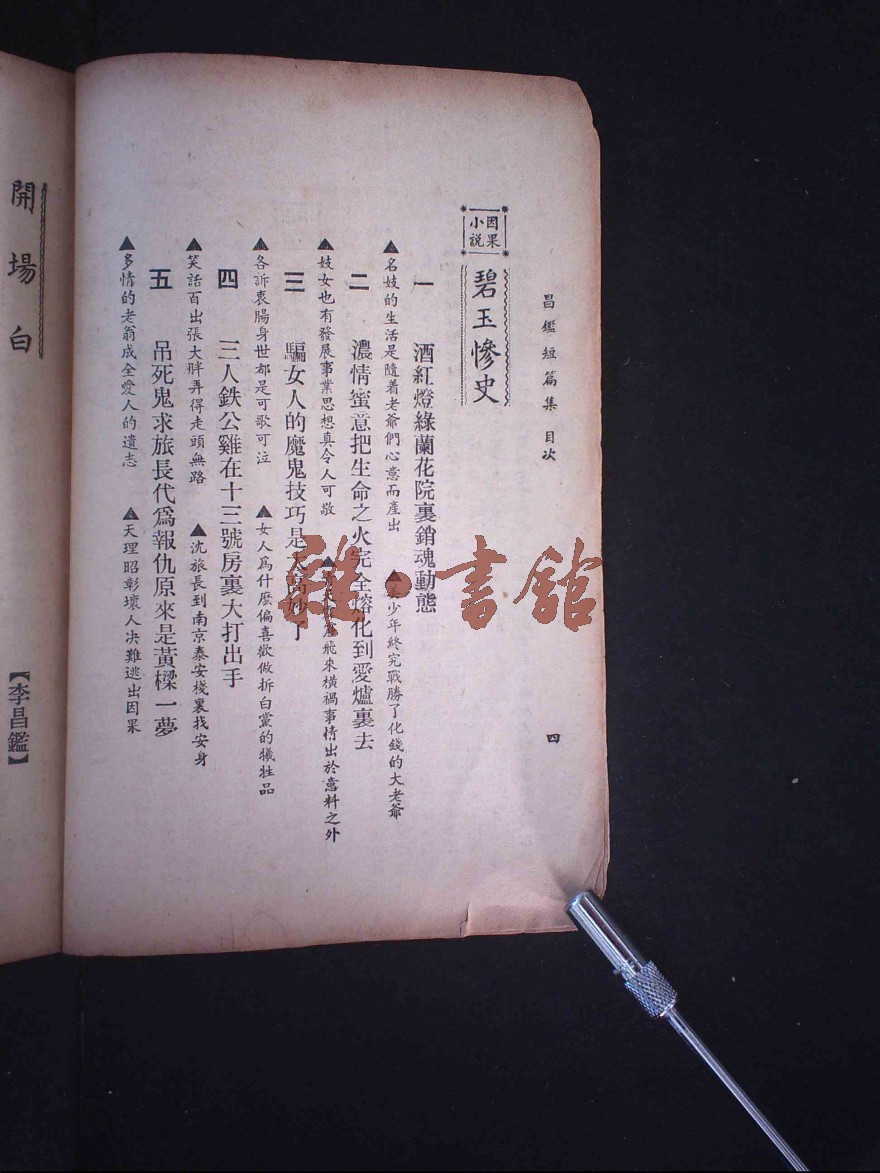 昌鑑短篇集 目次
四
因果小説
碧玉慘史
一 酒紅燈綠蘭花院裏銷魂動態
▲名妓的生活是隨着老爺們心意而產出 ▲少年終究戰勝了化錢的大老爺
二 濃情蜜意把生命之火完全熔化到愛爐裏去
▲妓女也有發展事業思想眞令人可敬 ▲飛來橫禍事情出於意料之外
三 騙女人的魔鬼技巧是大高妙了
▲各訴衷腸身世都是可歌可泣 ▲女人爲什麽偏喜歡做拆白黨的犧牲品
四 三人鉄公雞在十三號房裏大打出手
▲笑話百出張大胖弄得走頭無路 ▲沈旅長到南京泰安棧裏找安身
五 吊死鬼求旅長代爲報仇原來是黃樑一夢
▲多情的老翁成全愛人的遺志 ▲天理昭彰壞人决難逃出因果
開場白
【李昌鑑】
雜·書館